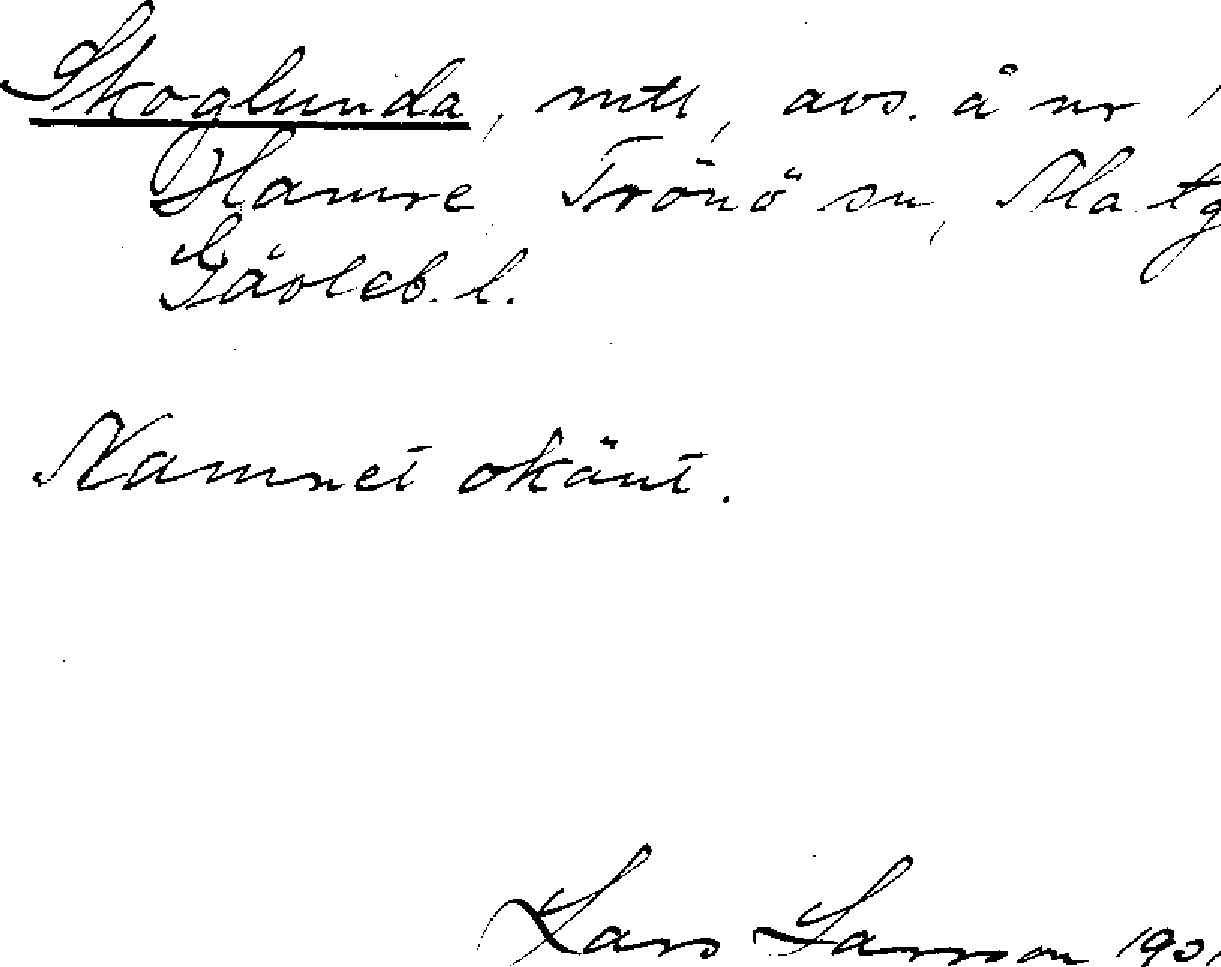 Skoglunda, mtl, avs. å nr 1
Hamre Trönö sn, Ala tg
Gävleb. l.
Namnet okänt.
Lars Larsson